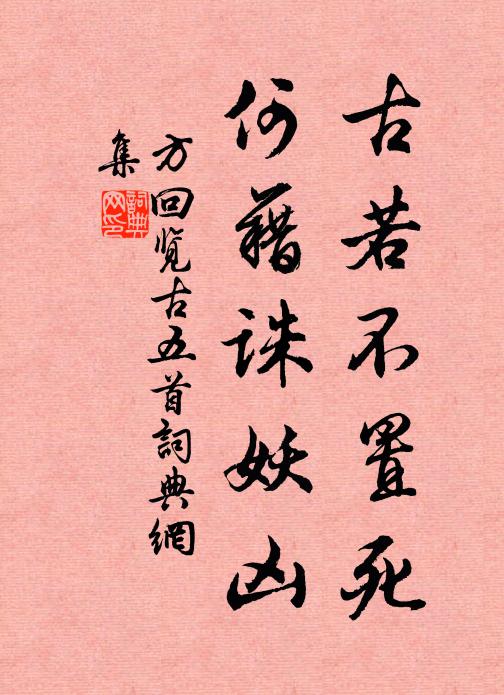 古若不置死
何藉诛妖凶
方回览古五首詞典網
集
詞典
网印